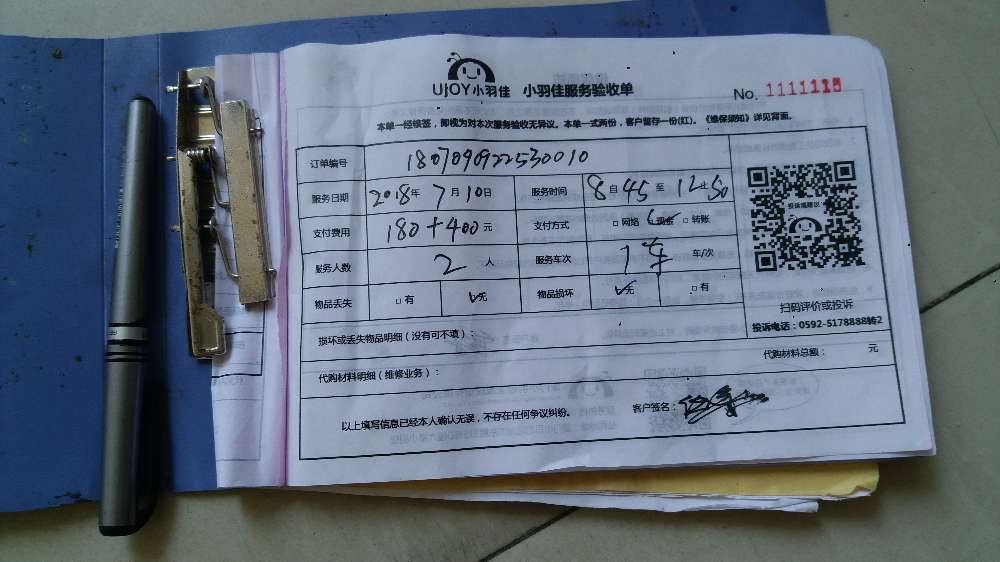 UJOY小羽佳 小羽佳服务验收单 No. 1111115
本单一经续签，即视为对本次服务验收无异议。本单一式两份，客户留存一份(红)。《维保须知》详见背面。
订单编号 1807090922530010
服务日期 2018年 7月10日 服务时间 8自45至12止50
支付费用 180+400元 支付方式 □网络 现金 □转账
服务人数 2人 服务车次 1车 车/次
物品丢失 □有 ☑无 物品损坏 ☑无 □有
投诉或建议
扫码评价或投诉
投诉电话：0592-5178888转2
损坏或丢失物品明细（没有可不填）：
代购材料明细（维修业务）： 代购材料总额： 元
以上填写信息已经本人确认无误，不存在任何争议纠纷。 客户签名：